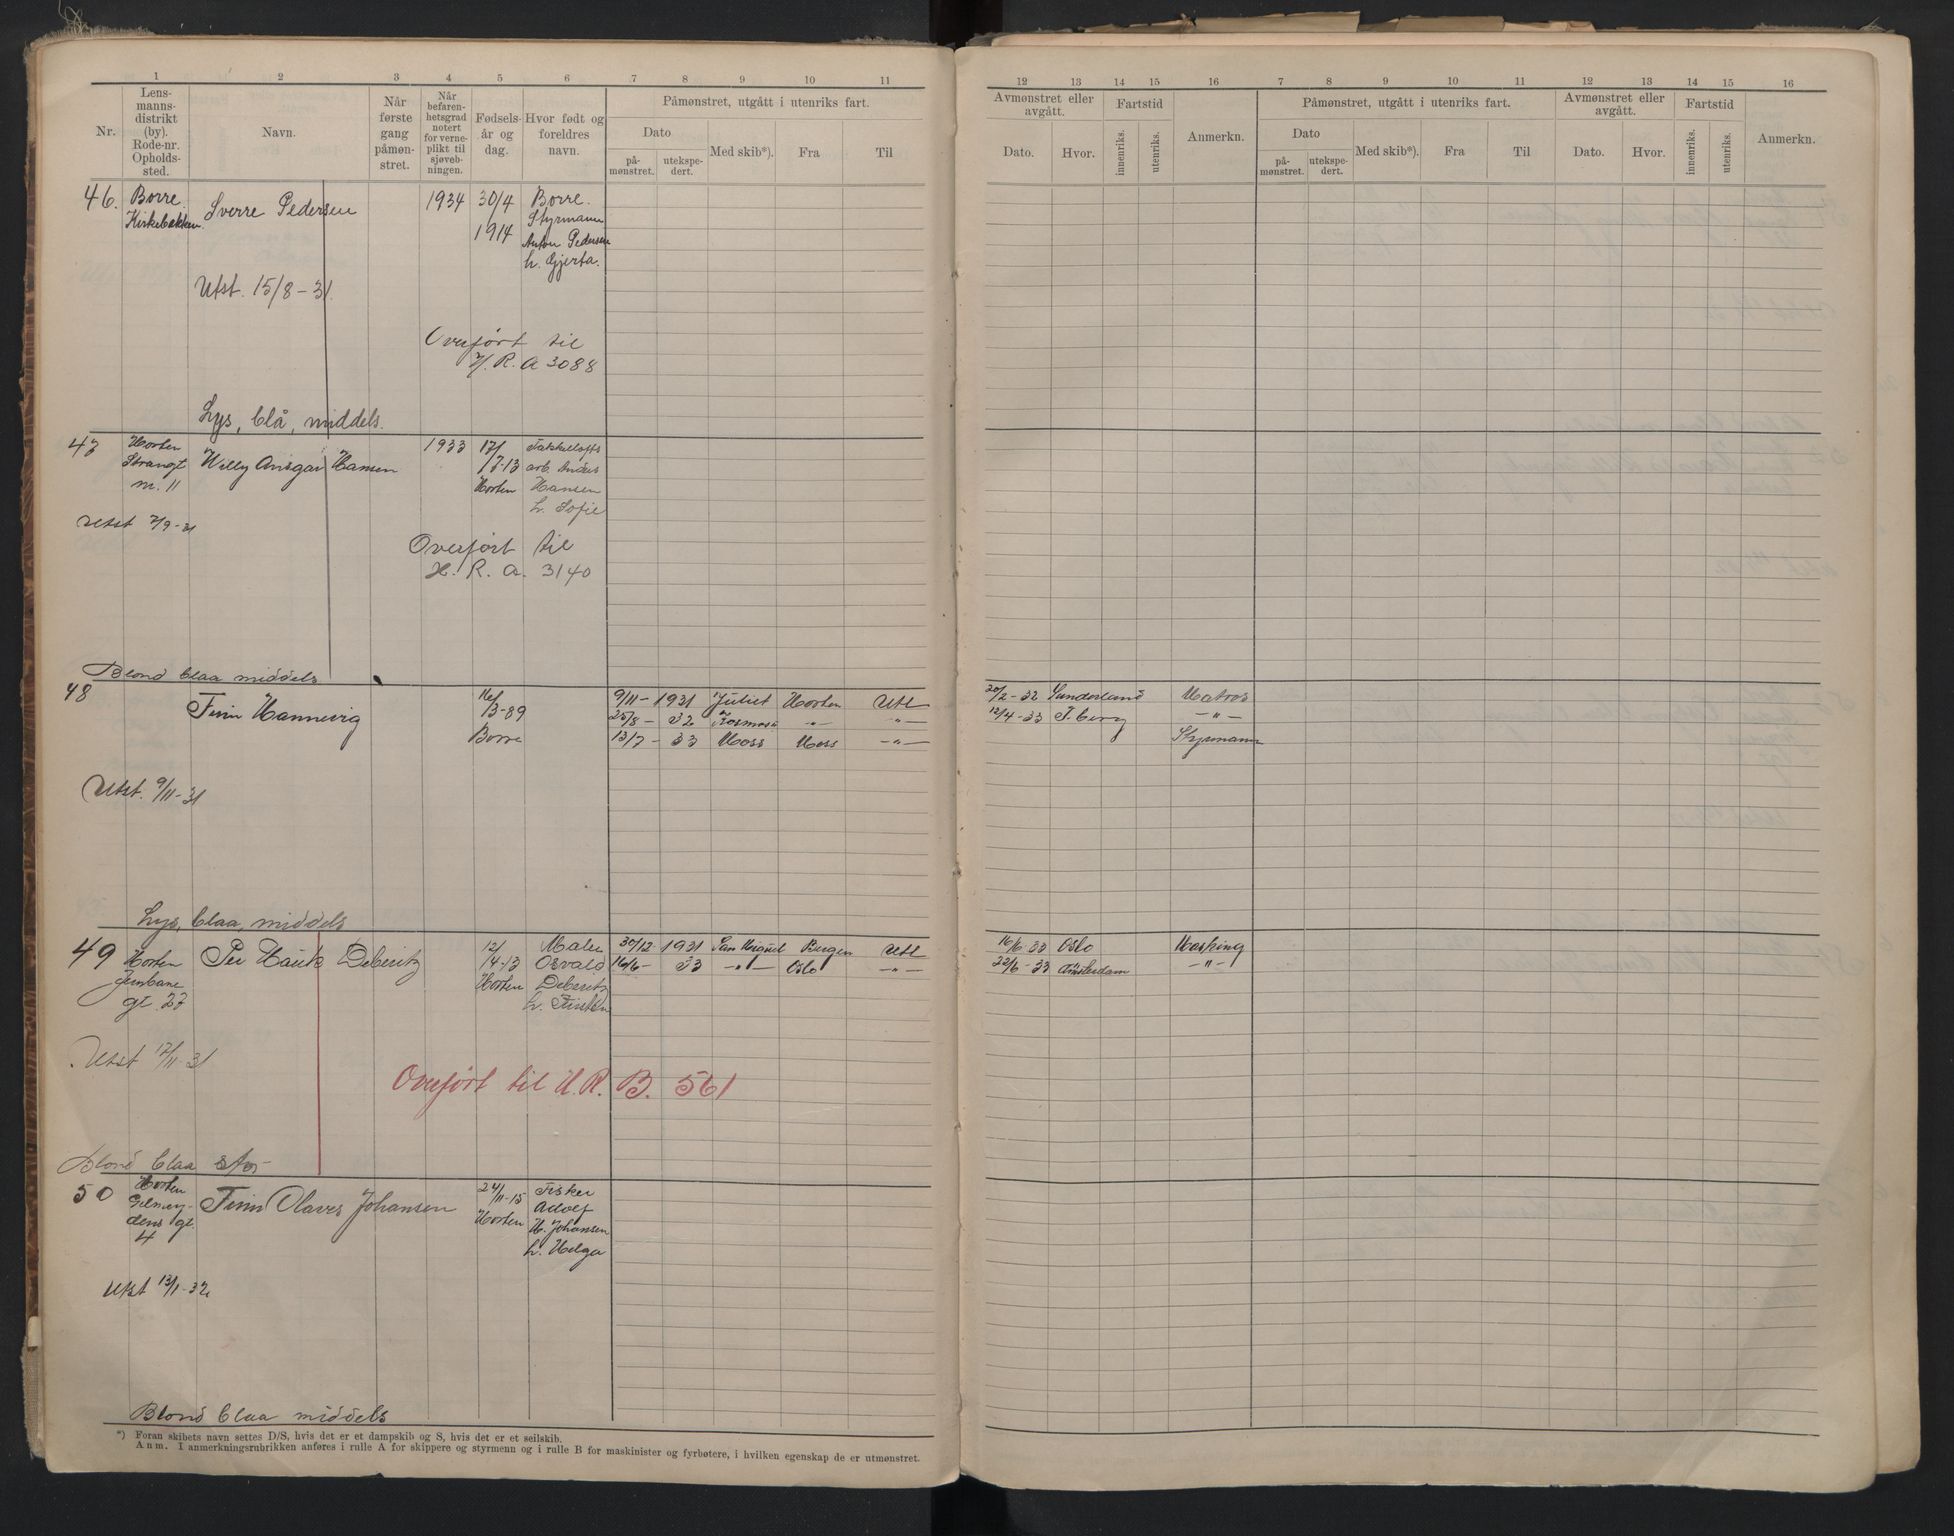 1 2 3 4 5 6 7 8 9 10 11
Nr.
Lens-
manns-
distrikt
(by).
Rode-nr.
Opholds-
sted.
Navn.
Når
første
gang
påmøn-
stret.
Når
befaren-
hetsgrad
notert
for verne-
plikt til
sjøveb-
ningen.
Fødsels-
år og
dag.
Hvor født og
foreldres
navn.
Påmønstret, utgått i utenriks fart.
Dato
på-
mønstret.
utekspe-
dert.
Med skib*).
Fra
Til
46. Borre. Sverre Pedersen 1934 30/4 Borre.
Kirkebakken Styrmann
1914 Anton Pedersen
h. Gjerta.
Utst. 15/8-31.
Overført til
H. R. A 3088
Lys, blå, middels.
47 Horten Willy Ansgar Hansen 1933 17/
Strangt 7-13 arb. Anders
nr. 11 Horten Hansen
h. Sofie
Utst 7/9-31
Overført til
H. R. A. 3140
Blond blaa middels
48 Finn Hannevig 16/ 9/11-1931 Juliet Horten Utl
3-89 25/8-32 Kosmos -"- -"-
Borre 13/7-33 Moss Moss -"-
Utst. 9/11-31
Lys, blaa, middels
49 Per Hauk Deberitz 12/ Maler 30/12-1931 San Miguel Bergen Utl
Horten 4-13 Osvald 16/6-33 -"- Oslo -"-
Jernbane Horten Deberitz
gt. 27 h. Kirsten
Utst 17/11-31
Overført til H.R. B. 561
Blond blaa stor
50 Horten Finn Olaves Johansen 24/ Fisker
11-15 Adolf
dens gt. Horten H. Johansen
4 h. Helga
Utst 13/1-32
Blond blaa middels
*) Foran skibets navn settes D/S, hvis det er et dampskib og S, hvis det er et seilskib.
Anm. I anmerkningsrubrikken anføres i rulle A for skippere og styrmenn og i rulle B for maskinister og fyrbøtere, i hvilken egenskap de er utmønstret.
12 13 14 15 16 7 8 9 10 11 12 13 14 15 16
Avmønstret eller
avgått.
Dato.
Hvor.
Fartstid
innenriks.
utenriks.
Anmerkn.
Påmønstret, utgått i utenriks fart.
Dato
på-
mønstret.
utekspe-
dert.
Med skib*).
Fra
Til
Avmønstret eller
avgått.
Dato.
Hvor.
Fartstid
innenriks.
utenriks.
Anmerkn.
20/2-32 Sunderland Matros
12/4-33 T.berg -"-
Styrmann
16/6-33 Oslo Masking
22/6-33 Amsterdam -"-